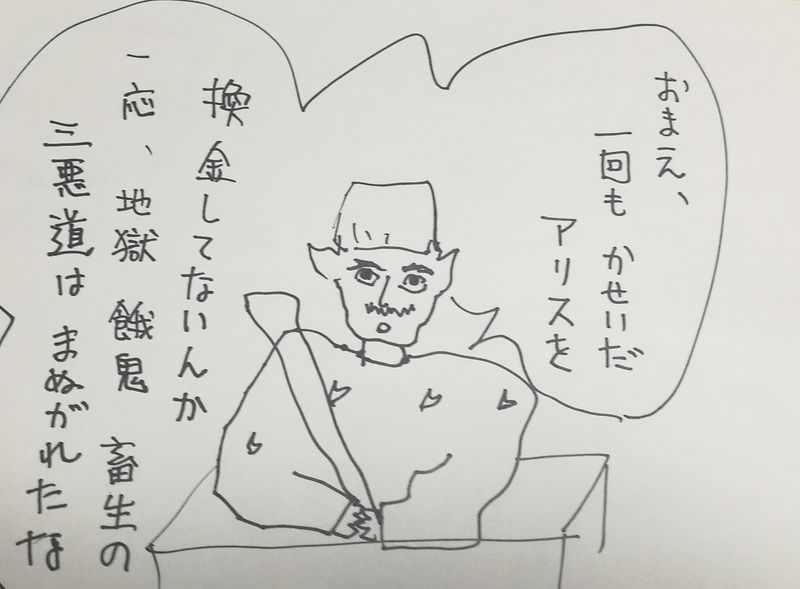 おまえ、
一回も かせいだ
アリスを
換金してないんか
一応、地獄 餓鬼 畜生の
三悪道は まぬがれたな